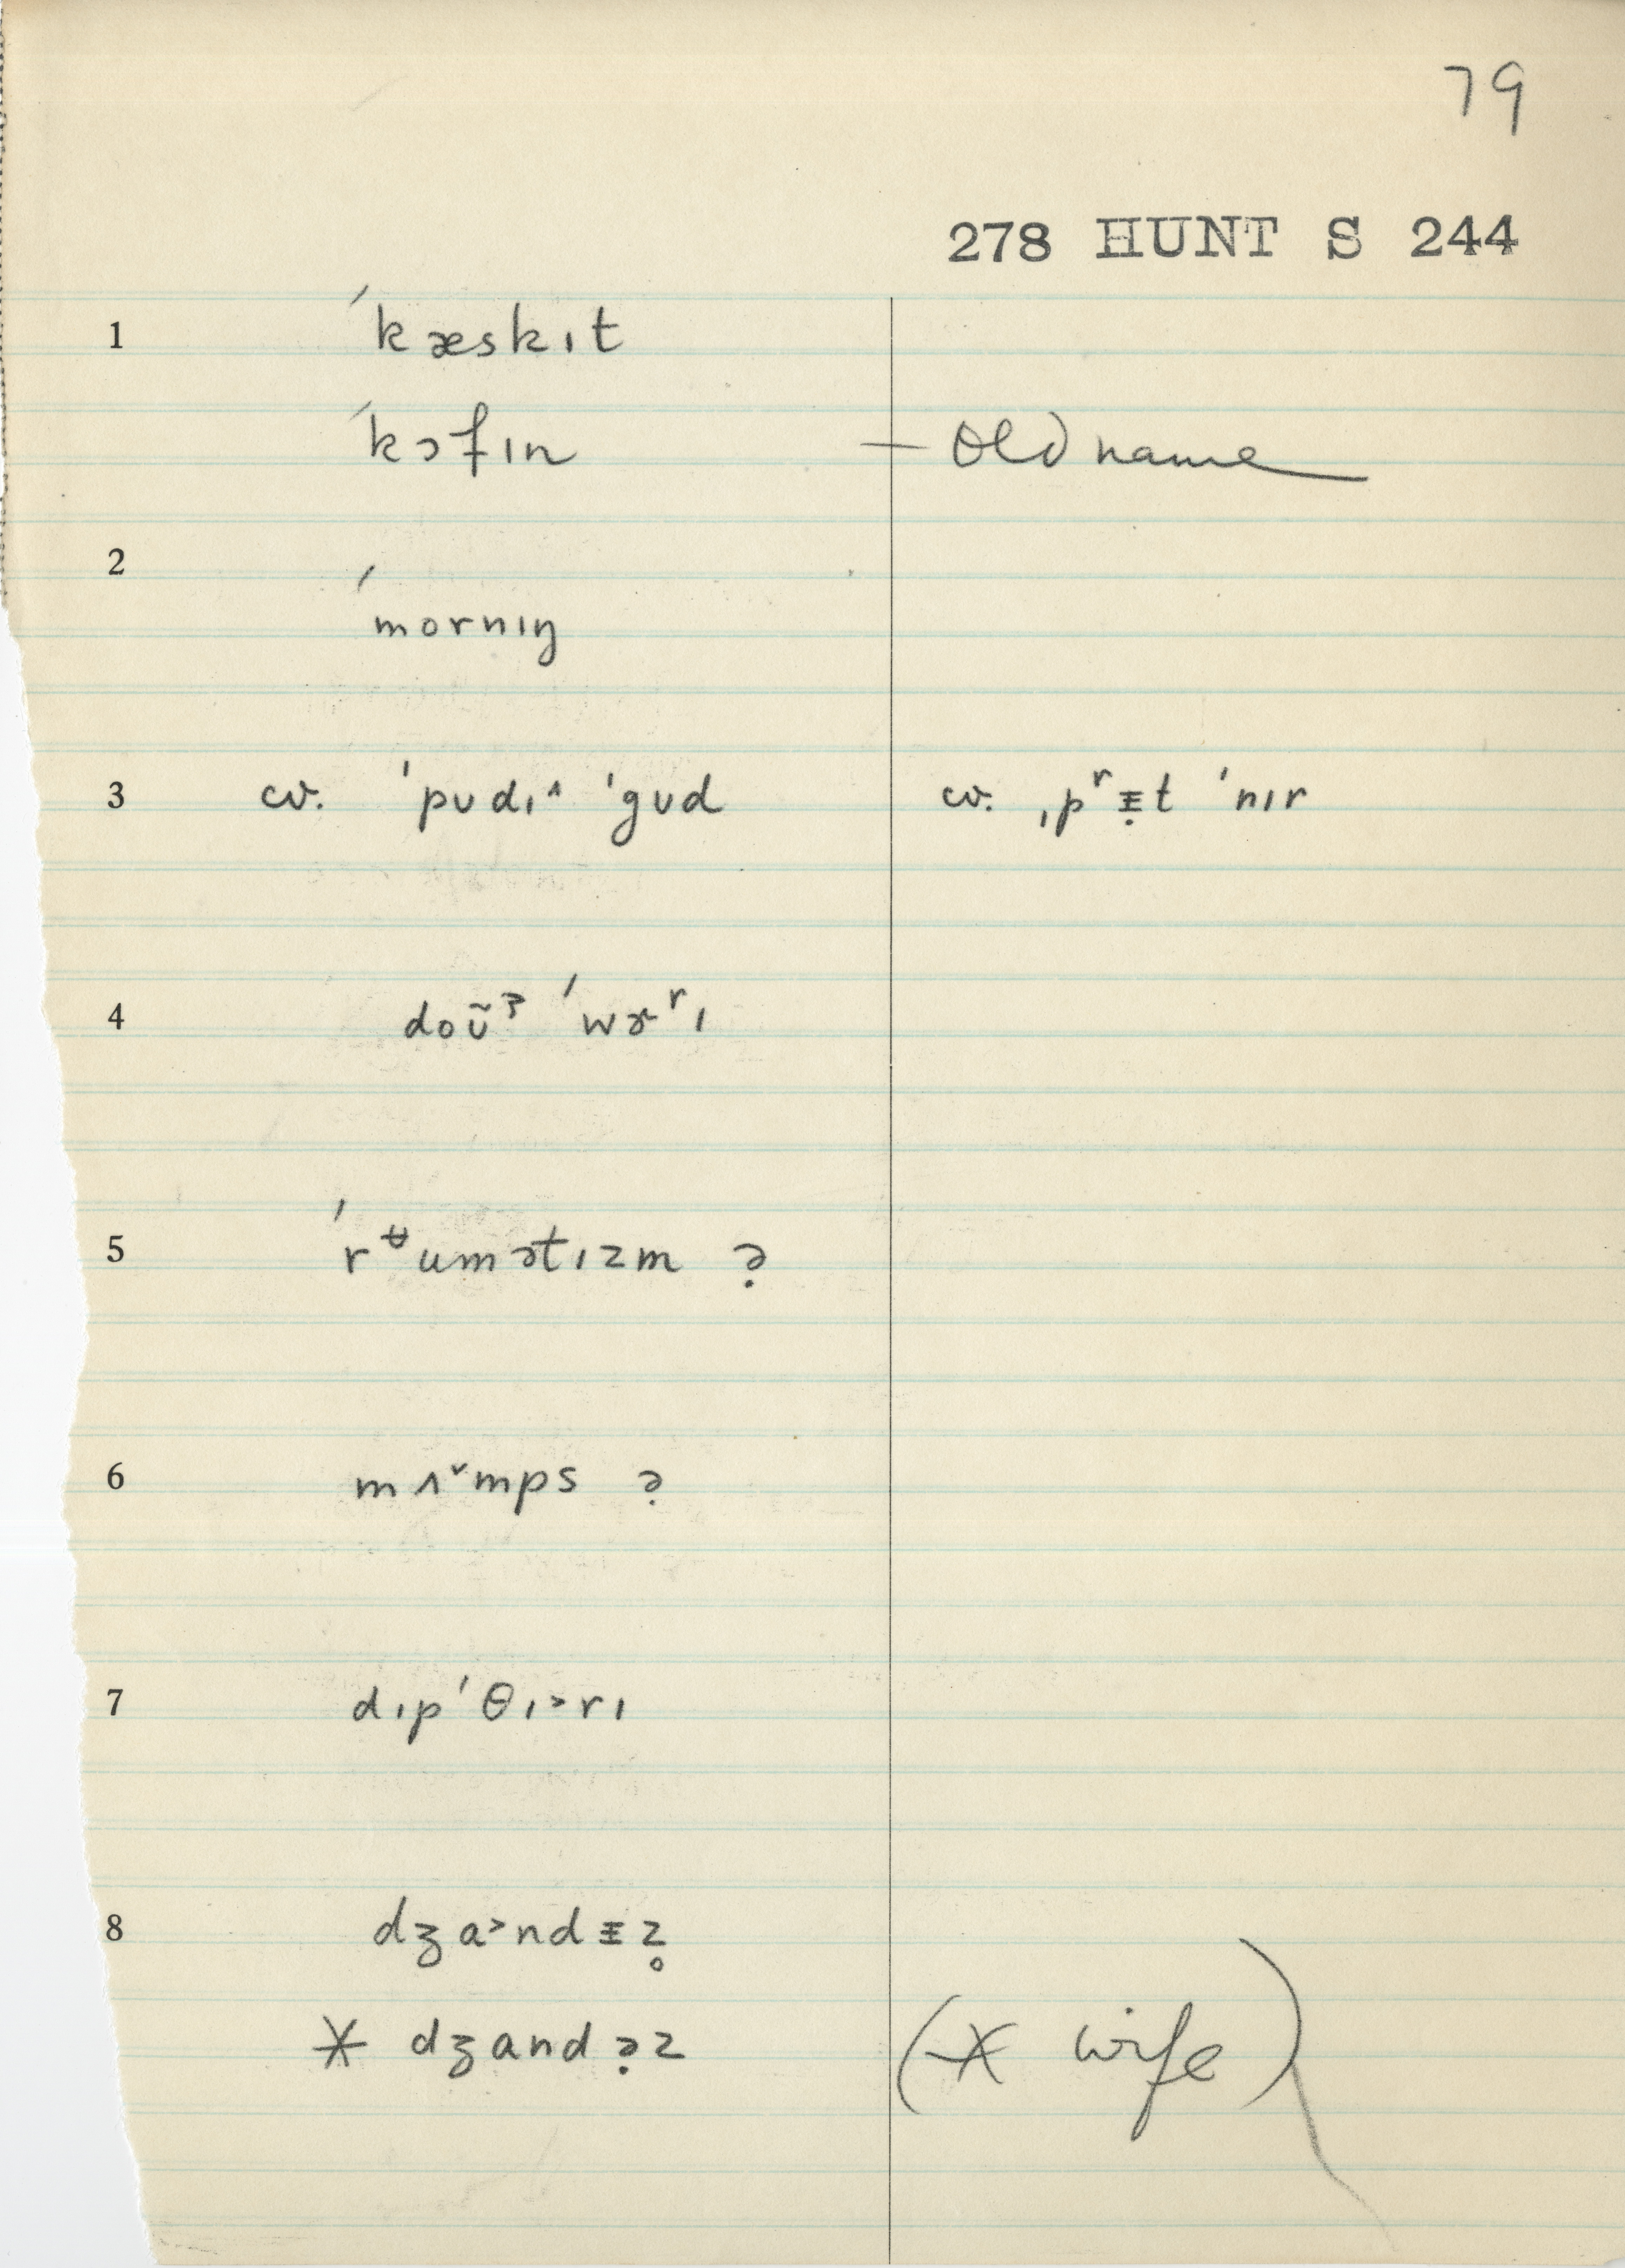 79
278 HUNT S 244
1 ˈkæskɪt
ˈkɔfɪn — Old name
2
ˈmornɪŋ
3 cv. ˈpʊdɪ^ ˈgʊd cv. ˌpʳᵻ̣t ˈnɪr
4 doʊ̃ᶾ ˈwɚʳɪ
5 ˈrᶶumətɪzm ə̣
6 mʌ˅mps ə̣
7 dɪpˈθɪ˃rɪ
8 dʒa˃ndᵻẓ̥
* dʒandə̣z (* wife)